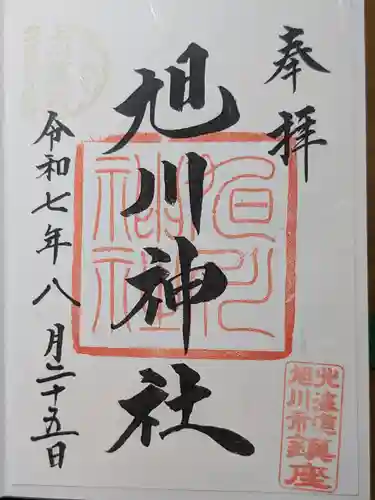 奉拝
旭川神社
令和七年八月二十五日
旭川
神社
北海道
旭川市鎮座